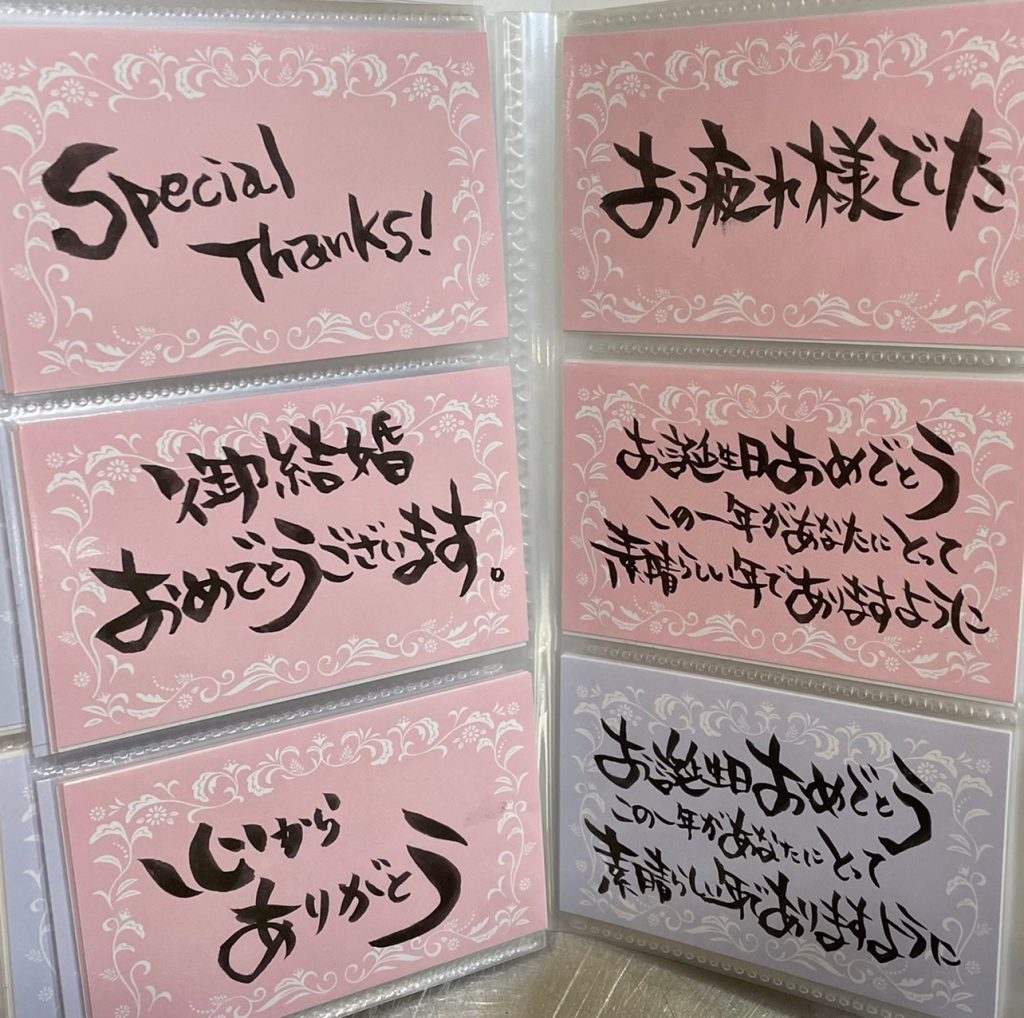 Special
Thanks!
御結婚
おめでとうございます。
心から
ありがとう
お疲れ様でした
お誕生日おめでとう
この一年があなたにとって
素晴らしい年でありますように
お誕生日おめでとう
この一年があなたにとって
素晴らしい年でありますように